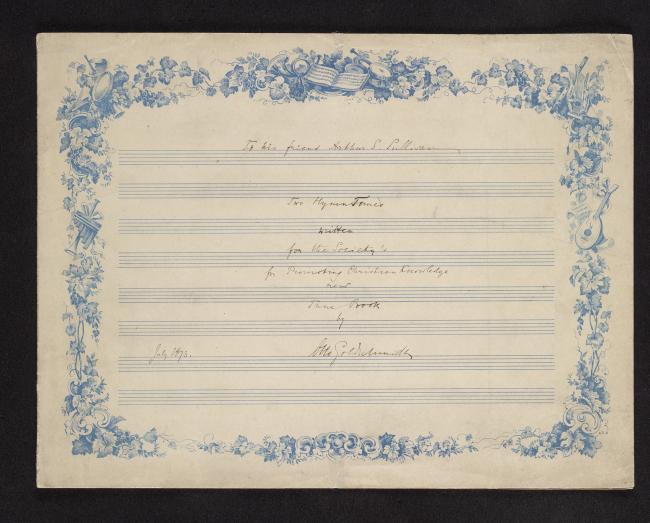 To his friend Arthur S. Sullivan
Two Hymn Tunes
written
for the Society's
for Promoting Christian Knowledge
new
Tune Book
by
July 1873. Otto Goldschmidt